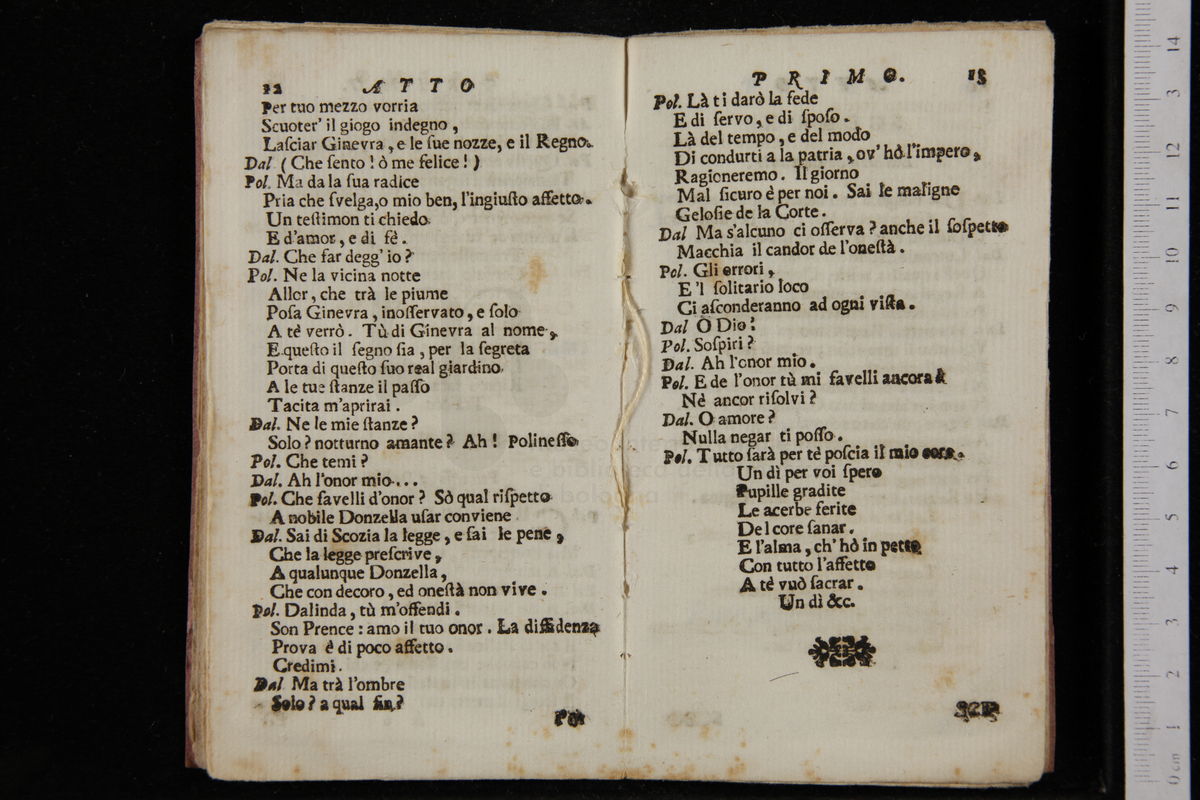 12 ATTO
Per tuo mezzo vorria
Scuoter' il giogo indegno,
Laſciar Ginevra, e le ſue nozze, e il Regno.
Dal (Che ſento! ò me felice!)
Pol. Ma da la ſua radice
Pria che ſvelga, o mio ben, l'ingiuſto affetto.
Un teſtimon ti chiedo
E d'amor, e di fè.
Dal. Che far degg' io?
Pol. Ne la vicina notte
Allor, che trà le piume
Poſa Ginevra, inoſſervato, e ſolo
A tè verrò. Tù di Ginevra al nome,
E queſto il ſegno ſia, per la ſegreta
Porta di queſto ſuo real giardino
A le tue ſtanze il paſſo
Tacita m'aprirai.
Dal. Ne le mie ſtanze?
Solo? notturno amante? Ah! Polineſſo
Pol. Che temi?
Dal. Ah l'onor mio...
Pol. Che favelli d'onor? Sò qual riſpetto
A nobile Donzella uſar conviene
Dal. Sai di Scozia la legge, e ſai le pene,
Che la legge preſcrive,
A qualunque Donzella,
Che con decoro, ed oneſtà non vive.
Pol. Dalinda, tù m'offendi.
Son Prence: amo il tuo onor. La diffidenza
Prova è di poco affetto.
Credimi.
Dal Ma trà l'ombre
Solo? a qual fin?
Pol
PRIMO. 13
Pol. Là ti darò la fede
E di ſervo, e di ſpoſo.
Là del tempo, e del modo
Di condurti a la patria, ov' hò l'impero,
Ragioneremo. Il giorno
Mal ſicuro è per noi. Sai le maligne
Geloſie de la Corte.
Dal Ma s'alcuno ci oſſerva? anche il ſoſpetto
Macchia il candor de l'oneſtà.
Pol. Gli orrori,
E 'l ſolitario loco
Ci aſconderanno ad ogni viſta.
Dal O Dio!
Pol. Soſpiri?
Dal. Ah l'onor mio.
Pol. E de l'onor tù mi favelli ancora?
Nè ancor riſolvi?
Dal. O amore?
Nulla negar ti poſſo.
Pol. Tutto ſarà per tè poſcia il mio core.
Un dì per voi ſpero
Pupille gradite
Le acerbe ferite
Del core ſanar.
E l'alma, ch' hò in petto
Con tutto l'affetto
A tè vuò ſacrar.
Un dì &c.
SCE